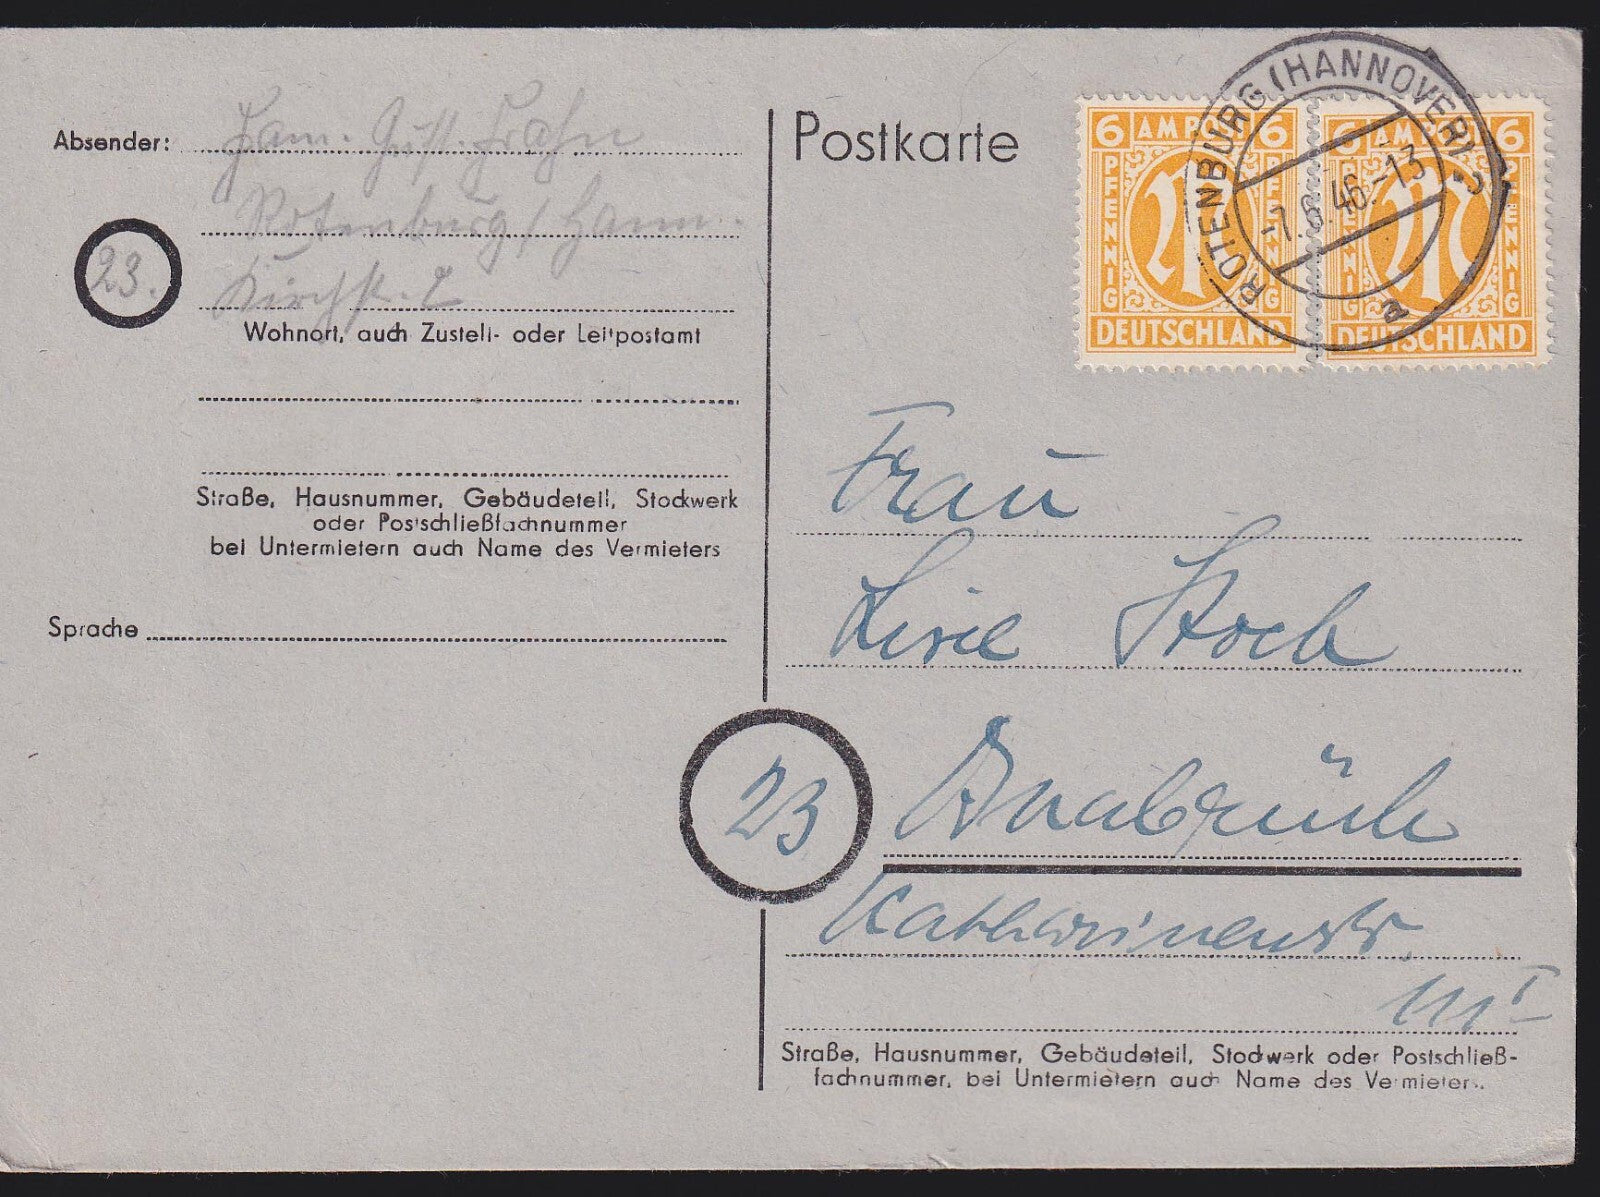 Absender: Fam. Gust. Hahn
Rotenburg / Hann.
23. Kirchstr.
Wohnort, auch Zustell- oder Leitpostamt
Straße, Hausnummer, Gebäudeteil, Stockwerk
oder Postschließfachnummer
bei Untermietern auch Name des Vermieters
Sprache
Postkarte
6 AM POST 6
PFENNIG PFENNIG
DEUTSCHLAND
6 AM POST 6
PFENNIG PFENNIG
DEUTSCHLAND
ROTENBURG (HANNOVER)
-7.6.46.-13
a
Frau
Lisie Stock
23 Osnabrück
Katharinenstr.
Straße, Hausnummer, Gebäudeteil, Stockwerk oder Postschließ-
fachnummer, bei Untermietern auch Name des Vermieters.